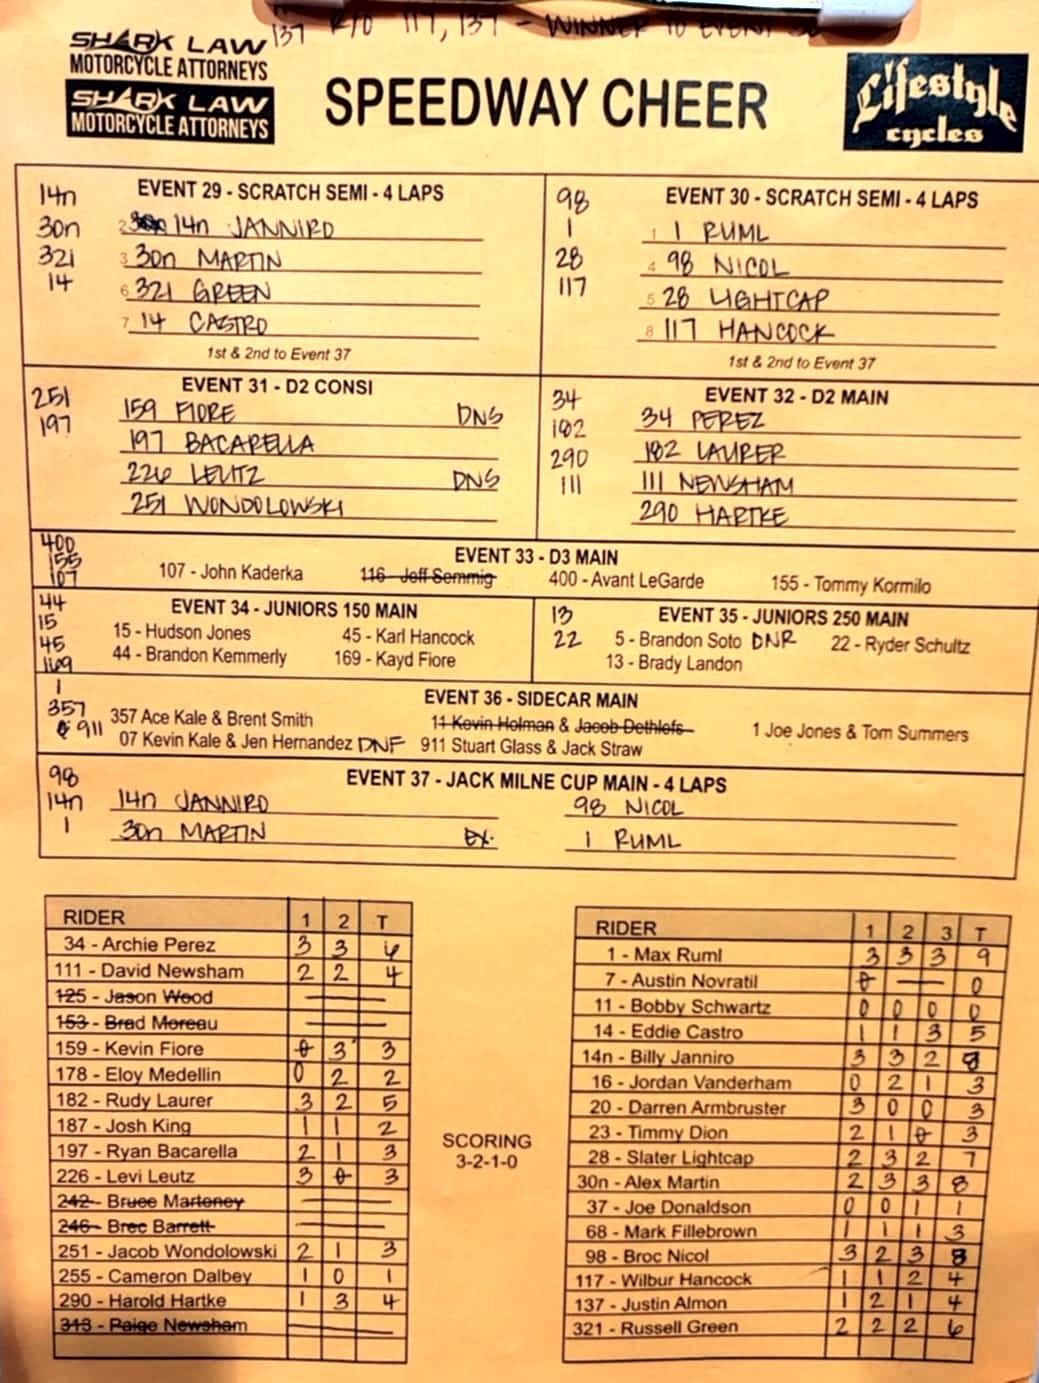 137 R/O 117, 137 - WINNER TO EVENT
SHARK LAW
MOTORCYCLE ATTORNEYS
SHARK LAW
MOTORCYCLE ATTORNEYS
SPEEDWAY CHEER
Lifestyle
cycles
EVENT 29 - SCRATCH SEMI - 4 LAPS
14n
30n
321
14
2 14n JANNIRO
3 30n MARTIN
6 321 GREEN
7 14 CASTRO
1st & 2nd to Event 37
EVENT 30 - SCRATCH SEMI - 4 LAPS
98
1
28
117
1 1 RUML
4 98 NICOL
5 28 LIGHTCAP
8 117 HANCOCK
1st & 2nd to Event 37
EVENT 31 - D2 CONSI
251
197
159 FIORE DNS
197 BACARELLA
226 LEUTZ DNS
251 WONDOLOWSKI
EVENT 32 - D2 MAIN
34
182
290
111
34 PEREZ
182 LAURER
111 NEWSHAM
290 HARTKE
400
155
107
EVENT 33 - D3 MAIN
107 - John Kaderka 116 - Jeff Sommig 400 - Avant LeGarde 155 - Tommy Kormilo
44
15
45
169
EVENT 34 - JUNIORS 150 MAIN
15 - Hudson Jones 45 - Karl Hancock
44 - Brandon Kemmerly 169 - Kayd Fiore
13
22
EVENT 35 - JUNIORS 250 MAIN
5 - Brandon Soto DNR 22 - Ryder Schultz
13 - Brady Landon
1
357
911
EVENT 36 - SIDECAR MAIN
357 Ace Kale & Brent Smith 11 Kevin Holman & Jacob Dethlefs 1 Joe Jones & Tom Summers
07 Kevin Kale & Jen Hernandez DNF 911 Stuart Glass & Jack Straw
98
14n
1
EVENT 37 - JACK MILNE CUP MAIN - 4 LAPS
14n JANNIRO 98 NICOL
30n MARTIN ex. 1 RUML
RIDER 1 2 T
34 - Archie Perez 3 3 6
111 - David Newsham 2 2 4
125 - Jason Wood
153 - Brad Moreau
159 - Kevin Fiore 0 3 3
178 - Eloy Medellin 0 2 2
182 - Rudy Laurer 3 2 5
187 - Josh King 1 1 2
197 - Ryan Bacarella 2 1 3
226 - Levi Leutz 3 0 3
242 - Bruce Marteney
246 - Brec Barrett
251 - Jacob Wondolowski 2 1 3
255 - Cameron Dalbey 1 0 1
290 - Harold Hartke 1 3 4
313 - Paige Newsham
SCORING
3-2-1-0
RIDER 1 2 3 T
1 - Max Ruml 3 3 3 9
7 - Austin Novratil 0 — 0
11 - Bobby Schwartz 0 0 0 0
14 - Eddie Castro 1 1 3 5
14n - Billy Janniro 3 3 2 8
16 - Jordan Vanderham 0 2 1 3
20 - Darren Armbruster 3 0 0 3
23 - Timmy Dion 2 1 0 3
28 - Slater Lightcap 2 3 2 7
30n - Alex Martin 2 3 3 8
37 - Joe Donaldson 0 0 1 1
68 - Mark Fillebrown 1 1 1 3
98 - Broc Nicol 3 2 3 8
117 - Wilbur Hancock 1 1 2 4
137 - Justin Almon 1 2 1 4
321 - Russell Green 2 2 2 6